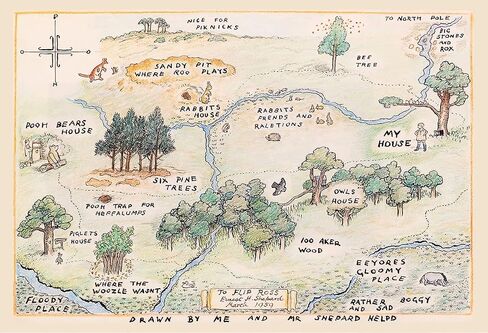 NICE FOR
PIKNICKS
TO NORTH POLE
BIG
STONES
AND
ROX
SANDY PIT
WHERE ROO PLAYS
BEE
TREE
RABBITS
HOUSE
RABBITS
FRENDS AND
RALETIONS
POOH BEARS
HOUSE
MY
HOUSE
SIX PINE
TREES
OWLS
HOUSE
POOH TRAP FOR
HEFFALUMPS
PIGLETS
HOUSE
100 AKER
WOOD
EEYORES
GLOOMY
PLACE
WHERE THE
WOOZLE WASNT
TO FLIP ROSS
Ernest H. Shepard
March 1959
FLOODY
PLACE
RATHER BOGGY
AND SAD
DRAWN BY ME AND MR SHEPARD HELPD